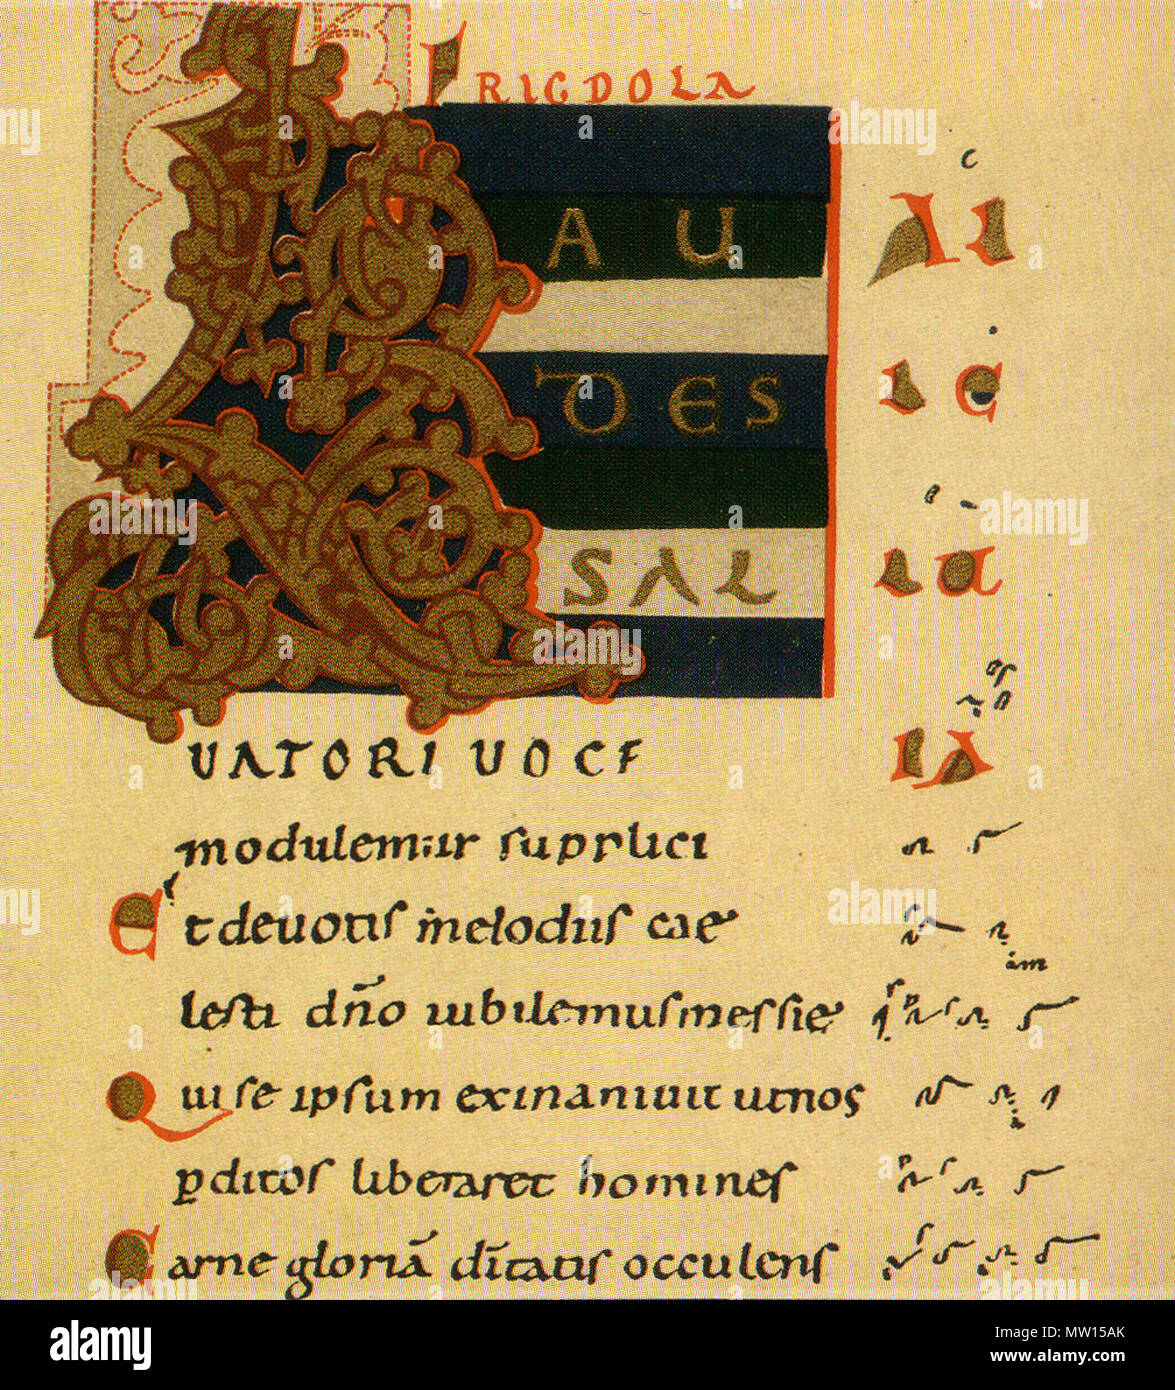 FRIGDOLA
LAU
DES
SAL
UATORI UOCE
modulemur supplici
Et deuotis melodiis cae
lesti dño iubilemus messie
Qui se ipsum exinaniuit ut nos
perditos liberaret homines
Carne gloriā dītatis occulens
AL
LE
LU
IA
am
alamy
Image ID: MW15AK
www.alamy.com